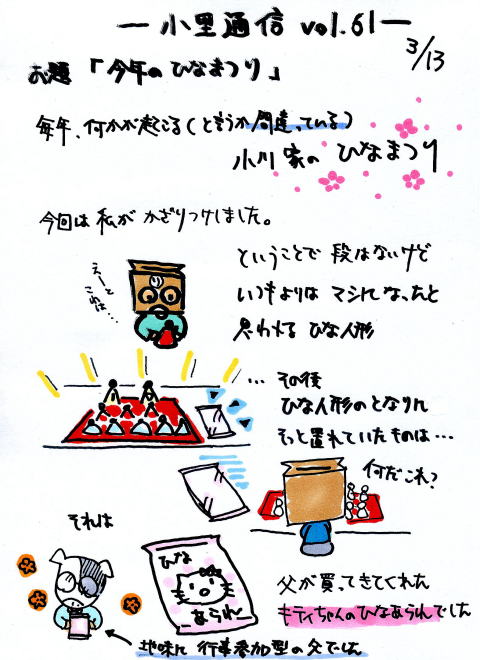 ー小里通信 vol.61ー
3/13
お題「今年のひなまつり」
毎年、何かが起こる(と言うか間違っている)
小川家の ひなまつり
今回は私がかざりつけしました。
えーと
これは…
ということで 段はないけど
いつもよりは マシになったと
思われる ひな人形
…その後
ひな人形のとなりに
そっと置れていたものは…
何だこれ?
それは
ひな
あられ
父が買ってきてくれた
キティちゃんのひなあられでした
地味に 行事参加型の父でした